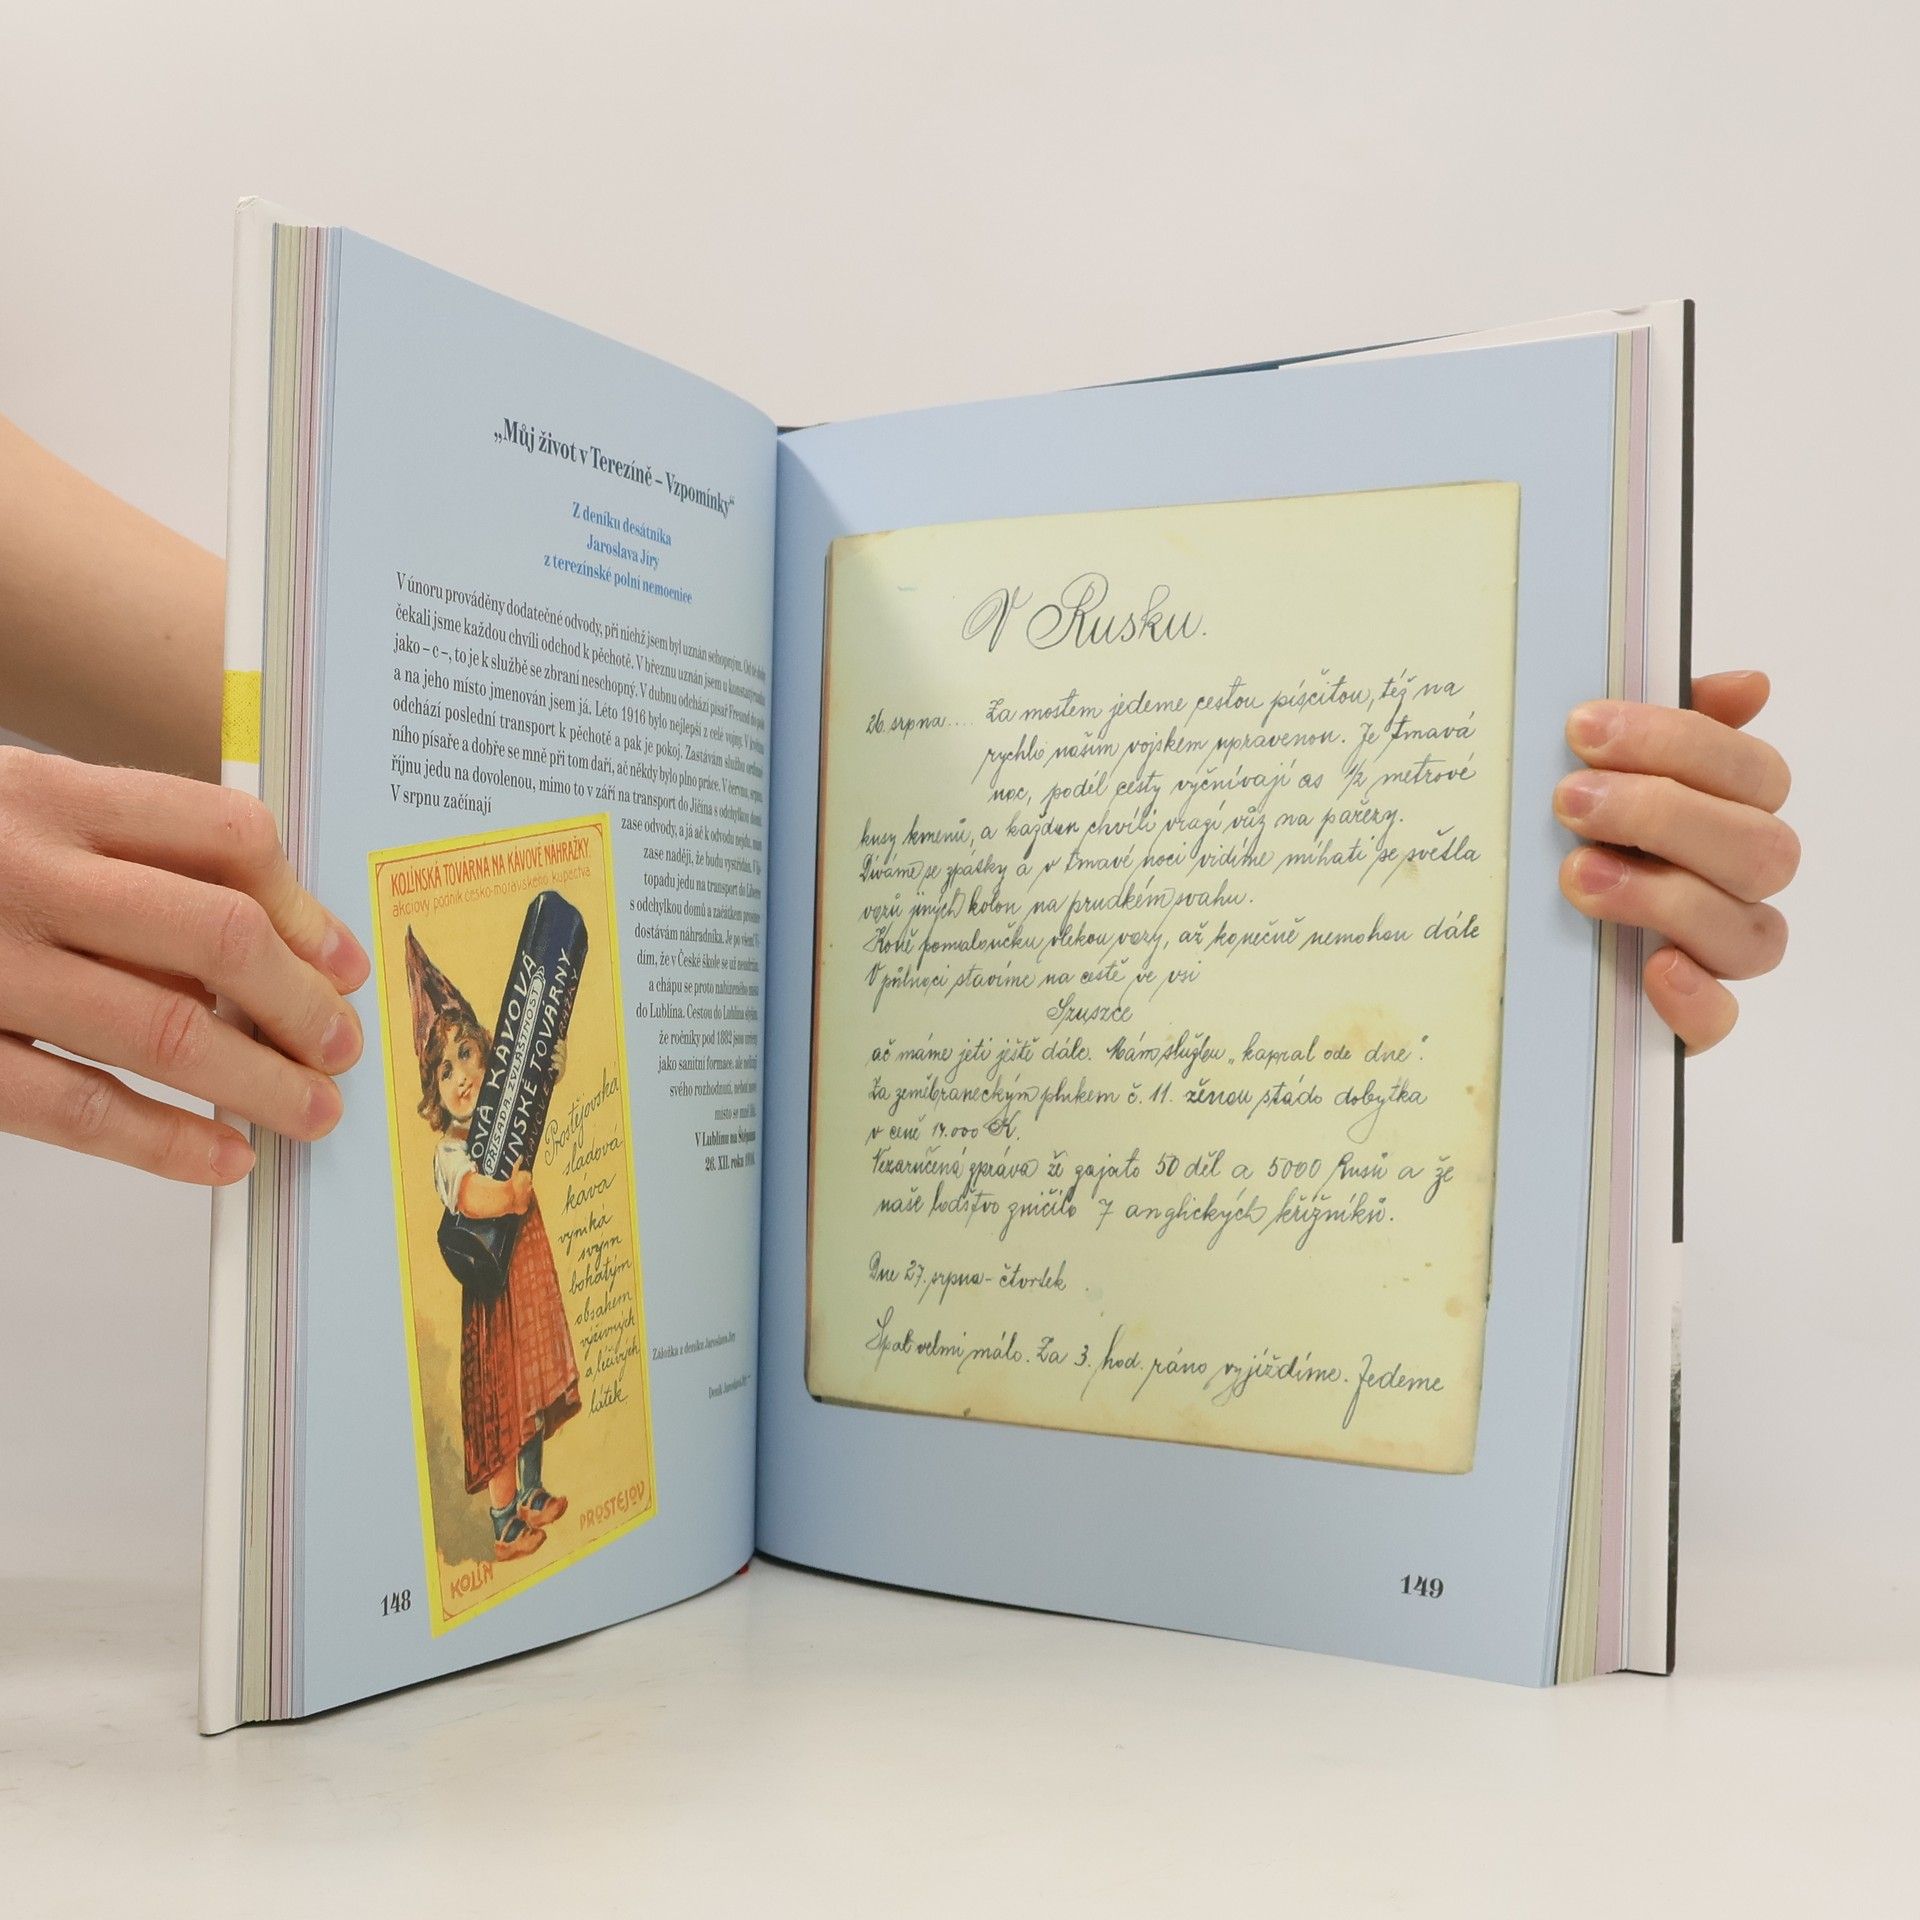 „Můj život v Terezíně – Vzpomínky“
Z deníku desátníka
Jaroslava Jíry
z terezínské polní nemocnice
V únoru prováděny dodatečné odvody, při nichž jsem byl uznán schopným. Od té doby
čekali jsme každou chvíli odchod k pěchotě. V březnu uznán jsem u
jako – c –, to je k službě se zbraní neschopný. V dubnu odchází písař Freund do pole
a na jeho místo jmenován jsem já. Léto 1916 bylo nejlepší z celé vojny. V květnu
odchází poslední transport k pěchotě a pak je pokoj. Zastávám službu
ního písaře a dobře se mně při tom daří, ač někdy bylo plno práce. V červnu, srpnu,
říjnu jedu na dovolenou, mimo to v září na transport do Jičína s odchylkou domů.
V srpnu začínají
zase odvody, a já ač k odvodu nejdu, mám
zase naději, že budu vystřídán. V li-
topadu jedu na transport do Liberce
s odchylkou domů a začátkem prosince
dostávám náhradníka. Je po všem! Vi-
dím, že v České škole se už neudržím,
a chápu se proto nabízeného místa
do Lublína. Cestou do Lublína slyším,
že ročníky pod 1882 jsou určeny
jako sanitní formace, ale nelituji
svého rozhodnutí, neboť nové
místo se mně líbí.
V Lublínu na Štěpána
26. XII. roku 1916.
KOLÍNSKÁ TOVÁRNA NA KÁVOVÉ NÁHRAŽKY
akciový podnik česko-moravského kupectva
OVÁ KÁVOVÁ
PŘÍSADA, ZVLÁŠTNOST
LÍNSKÉ TOVÁRNY
KÁVOVÉ NÁHRAŽKY
Prostějovská
sladová
káva
vyniká
svým
bohatým
obsahem
výživných
a léčivých
látek.
KOLÍN
PROSTĚJOV
Záložka z deníku Jaroslava Jíry
Deník Jaroslava Jíry
148
V Rusku.
26. srpna.... Za mostem jedeme cestou písčitou, též na
rychlo naším vojskem upravenou. Je tmavá
noc, podél cesty vyčnívají as 1/2 metrové
kusy kmenů, a každou chvíli vrazí vůz na pařezy.
Díváme se zpátky a v tmavé noci vidíme míhati se světla
vozů jiných kolon na prudkém svahu.
Koně pomaloučku vlekou vozy, až konečně nemohou dále
V půlnoci stavíme na cestě ve vsi
Szuszce
ač máme jeti ještě dále. Mám službu „kaprál ode dne“.
Za zeměbraneckým plukem č. 11. ženou stádo dobytka
v ceně 14.000 K.
Nezaručená zpráva že zajato 50 děl a 5000 Rusů a že
naše loďstvo zničilo 7 anglických křižníků.
Dne 27. srpna - čtvrtek
Spal velmi málo. Za 3. hod. ráno vyjíždíme. Jedeme
149